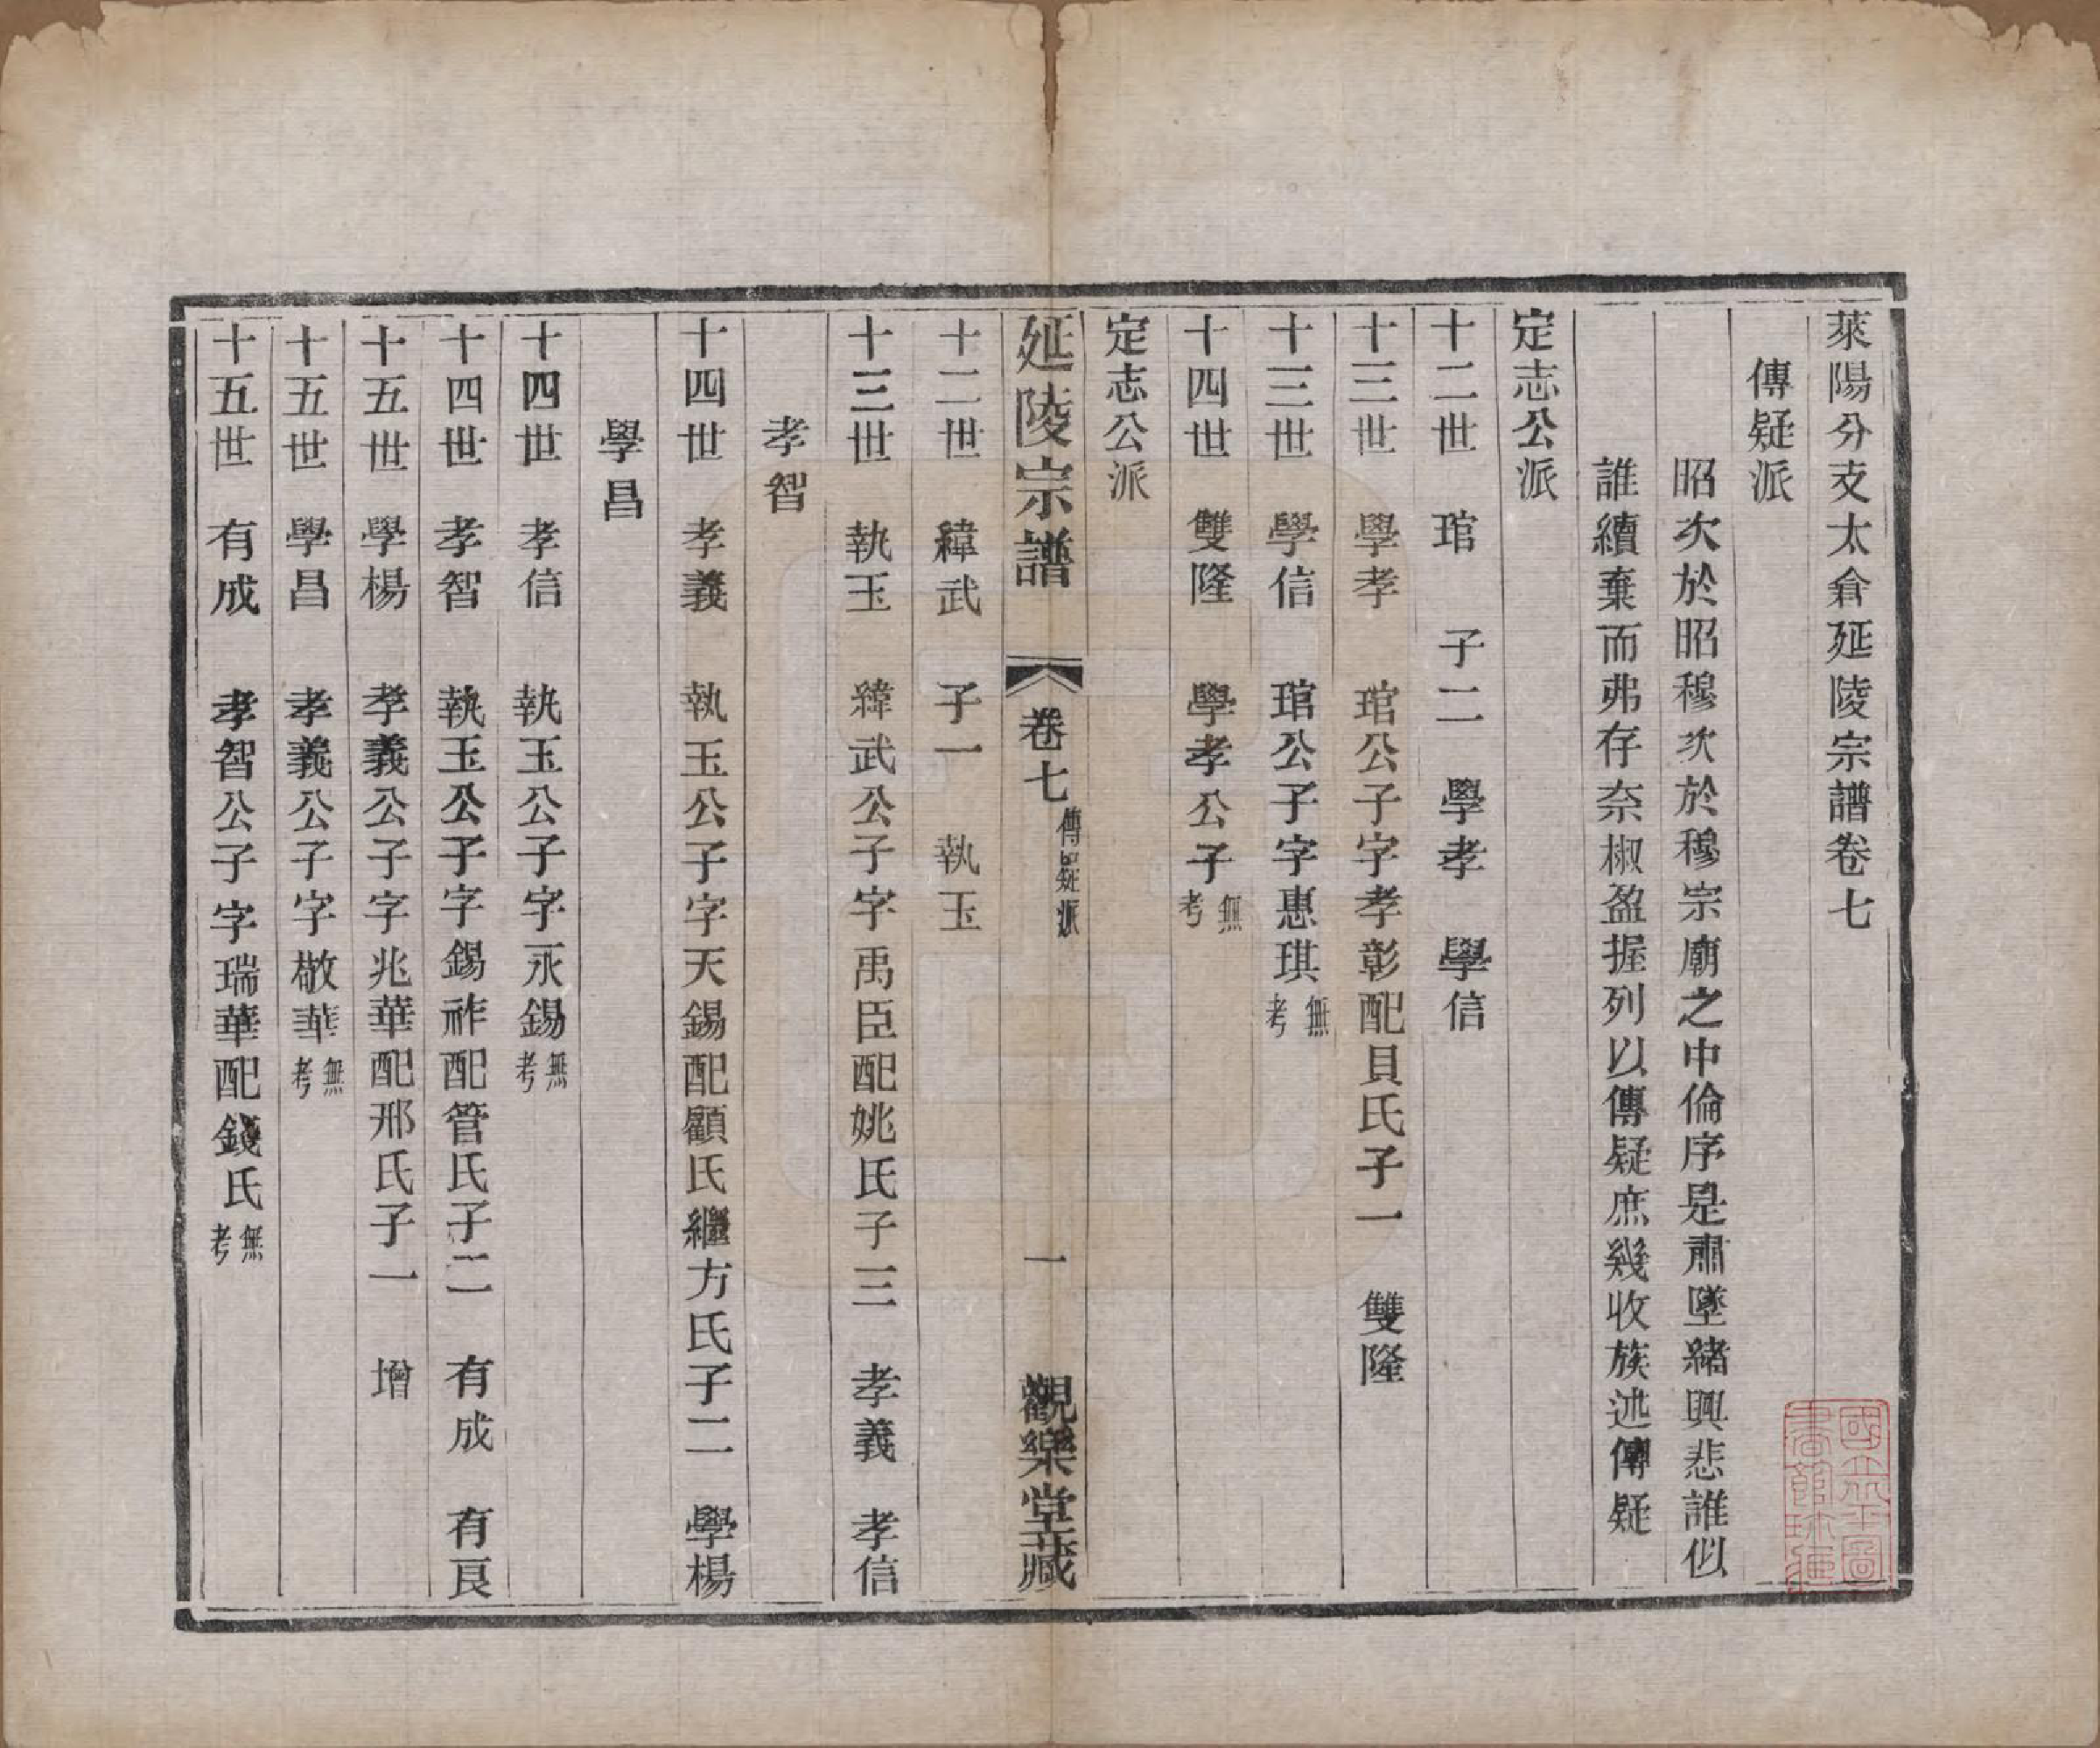 萊陽分支太倉延陵宗譜卷七
傳疑派
昭次於昭穆次於穆宗廟之中倫序是肅墜緒興悲誰似
誰續棄而弗存奈椒盈握列以傳疑庶幾收族述傳疑
定志公派
十二世 琯 子二 學孝 學信
十三世 學孝 琯公子字孝彰配貝氏子一 雙隆
十三世 學信 琯公子字惠琪無考
十四世 雙隆 學孝公子無考
定志公派
延陵宗譜 卷七 傳疑派 一 觀樂堂藏
十二世 緯武 子一 執玉
十三世 執玉 緯武公子字禹臣配姚氏子三 孝義 孝信
孝智
十四世 孝義 執玉公子字天錫配顧氏繼方氏子二 學楊
學昌
十四世 孝信 執玉公子字永錫無考
十四世 孝智 執玉公子字錫祚配管氏子二 有成 有良
十五世 學楊 孝義公子字兆華配邢氏子一 增
十五世 學昌 孝義公子字敬華無考
十五世 有成 孝智公子字瑞華配錢氏無考
國立北平圖書館珍藏